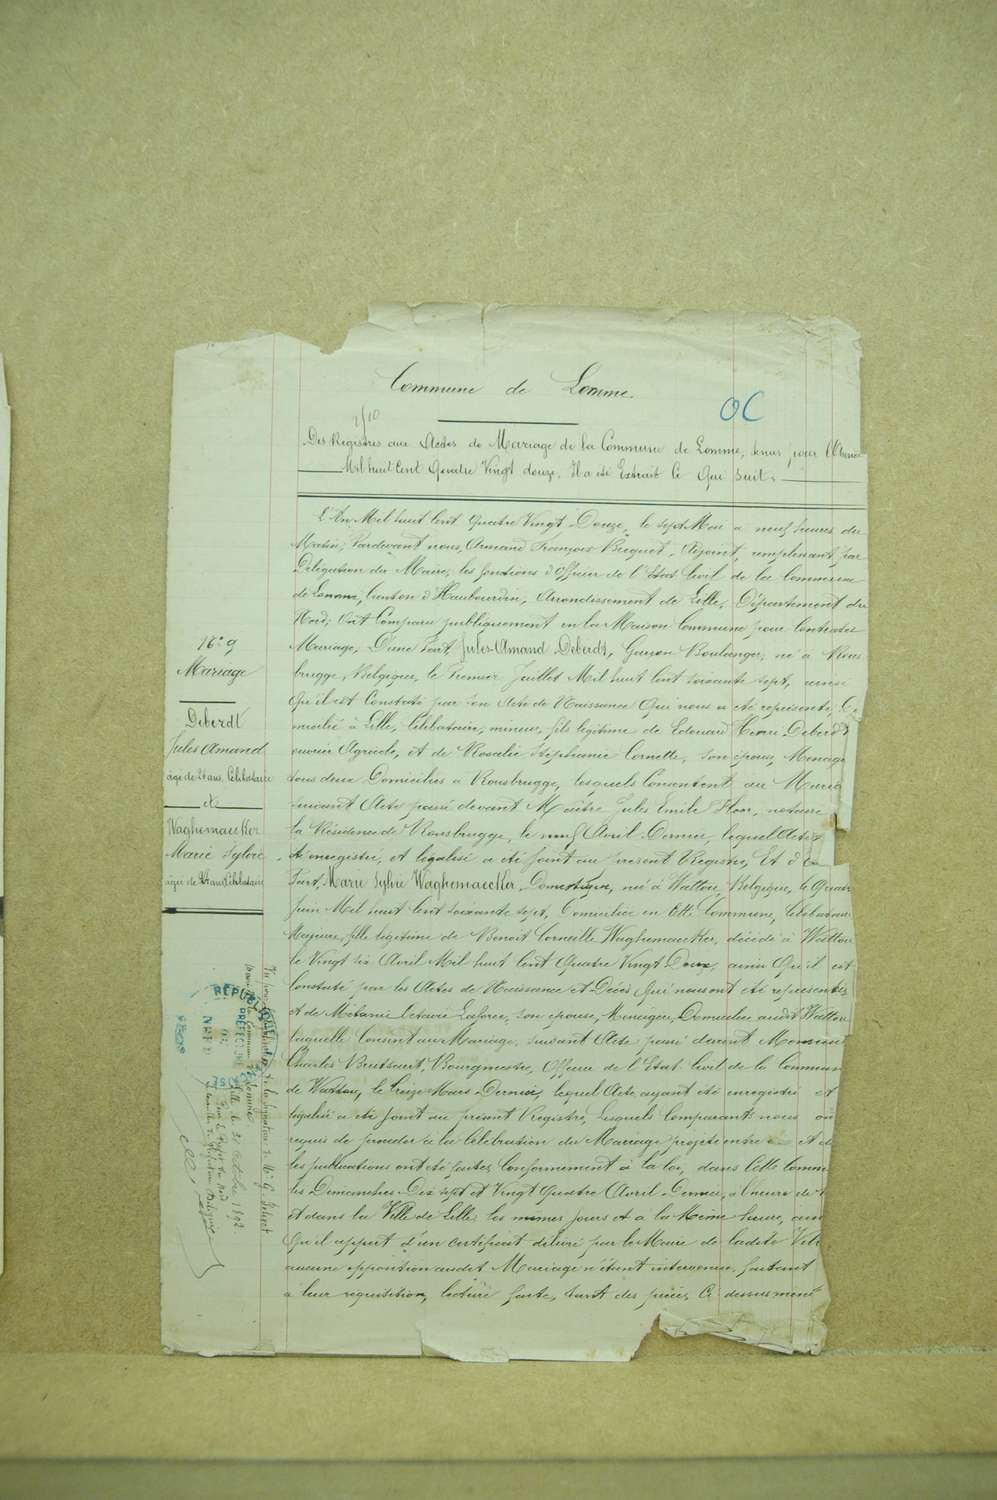 Commune de Lomme.
OC
2/10
Des Registres aux Actes de Mariage de la Commune de Lomme, tenus pour l'Année
Mil huit Cent Quatre Vingt douze, Il a été Extrait Ce Qui Suit.
L'An Mil huit Cent Quatre Vingt Douze, le sept Mai a neuf heures du
Matin; Pardevant nous, Armand François Becquet, Adjoint, remplissant par
Délégation du Maire, les fonctions d'Officier de l'Etat Civil de la Commune
de Lomme, Canton d'Haubourdin, Arrondissement de Lille, Département du
Nord; Ont Comparu publiquement en la Maison Commune pour Contracter
Mariage, D'une Part Jules-Amand Deberdt, Garçon Boulanger, né à Rous
brugge, Belgique, le Premier Juillet Mil huit Cent soixante sept, ainsi
Qu'il est Constaté par son Acte de Naissance Qui nous a été représenté, Do
micilié à Lille, Célibataire, mineur, fils légitime de Edouard Henri Deberdt
ouvrier Agricole, et de Rosalie Stéphanie Cornette, son épouse, Ménagè
tous deux Domiciliés à Rousbrugge, lesquels Consentent au Maria
suivant Acte passé devant Maître Jules Emile Flor, notaire
la Résidence de Rousbrugge, le neuf Avril Dernier, lequel Acte
enregistré, et légalisé a été joint au présent Registre, Et d'
Part, Marie Sylvie Waghemaecker, Domestique, née à Watou, Belgique, le Quatr
Juin Mil huit Cent soixante sept, Domiciliée en Cette Commune, Célibataire
Majeure, fille légitime de Benoit Corneille Waghemaecker, décédé à Watou
le Vingt six Avril Mil huit Cent Quatre Vingt Deux, ainsi Qu'il est
Constaté par les Actes de Naissance et Décès Qui nous ont été représentés
et de Mélanie Octavie Laforce, son épouse, Ménagère, Domiciliée audit Watou
laquelle Consent au Mariage, suivant Acte passé devant Monsieur
Charles Brutsaert, Bourgmestre, Officier de l'Etat Civil de la Commune
de Watou, le Treize Mars Dernier, lequel Acte ayant été enregistré et
légalisé a été joint au présent Registre, Lesquels Comparants nous on
requis de procéder à la Célébration du Mariage projeté entre et d
les publications ont été faites Conformément à la loi, dans Cette Commu
les Dimanches Dix sept et Vingt Quatre Avril Dernier, à l'heure de
et dans la Ville de Lille, les mêmes jours et à la Même heure, ain
Qu'il appert d'un Certificat délivré par le Maire de ladite Vill
aucune opposition audit Mariage n'étant intervenue, faisant
à leur réquisition, lecture faite, tant des pièces Ci dessus ment
N° 9
Mariage
Deberdt
Jules Amand
âgé de 24 ans, Célibataire
et
Waghemaecker
Marie Sylvie
âgée de 24 ans, Célibataire
de la signature de Mr G. Delecat
Maire de la Commune de Lomme
Lille, le 20 octobre 1892.
Pour le Préfet du Nord
RÉPUBLIQUE
PRÉFECTURE
DU
NORD